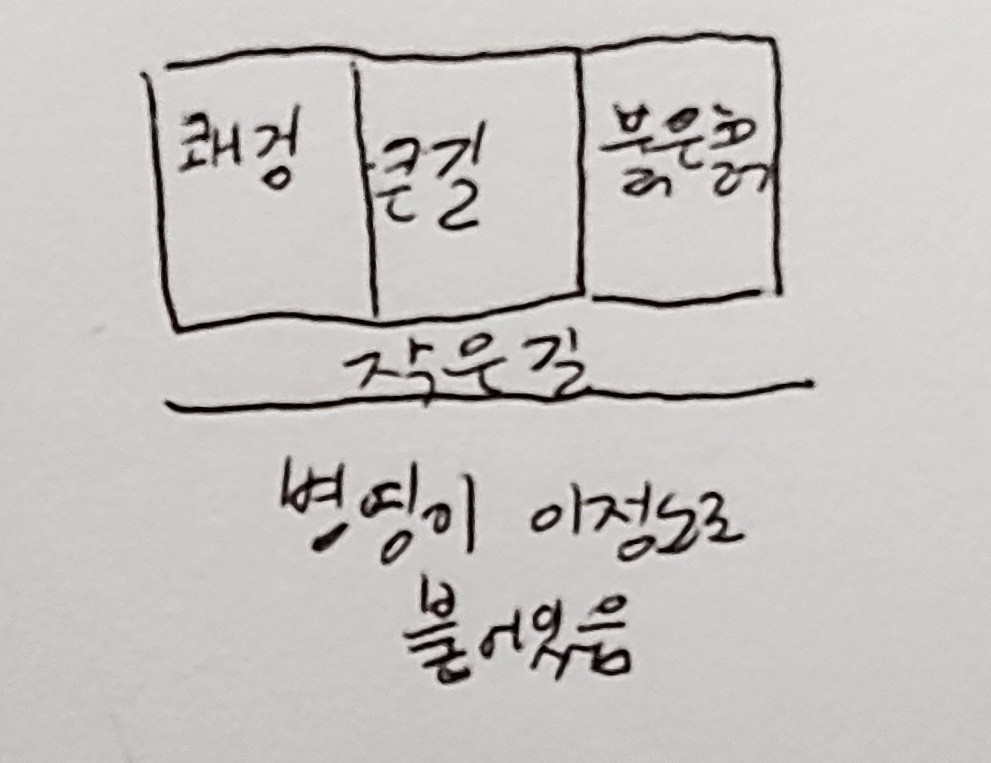 쾌검 큰길 붉은흙
작은길
변띵이 이정도로
붙어있음